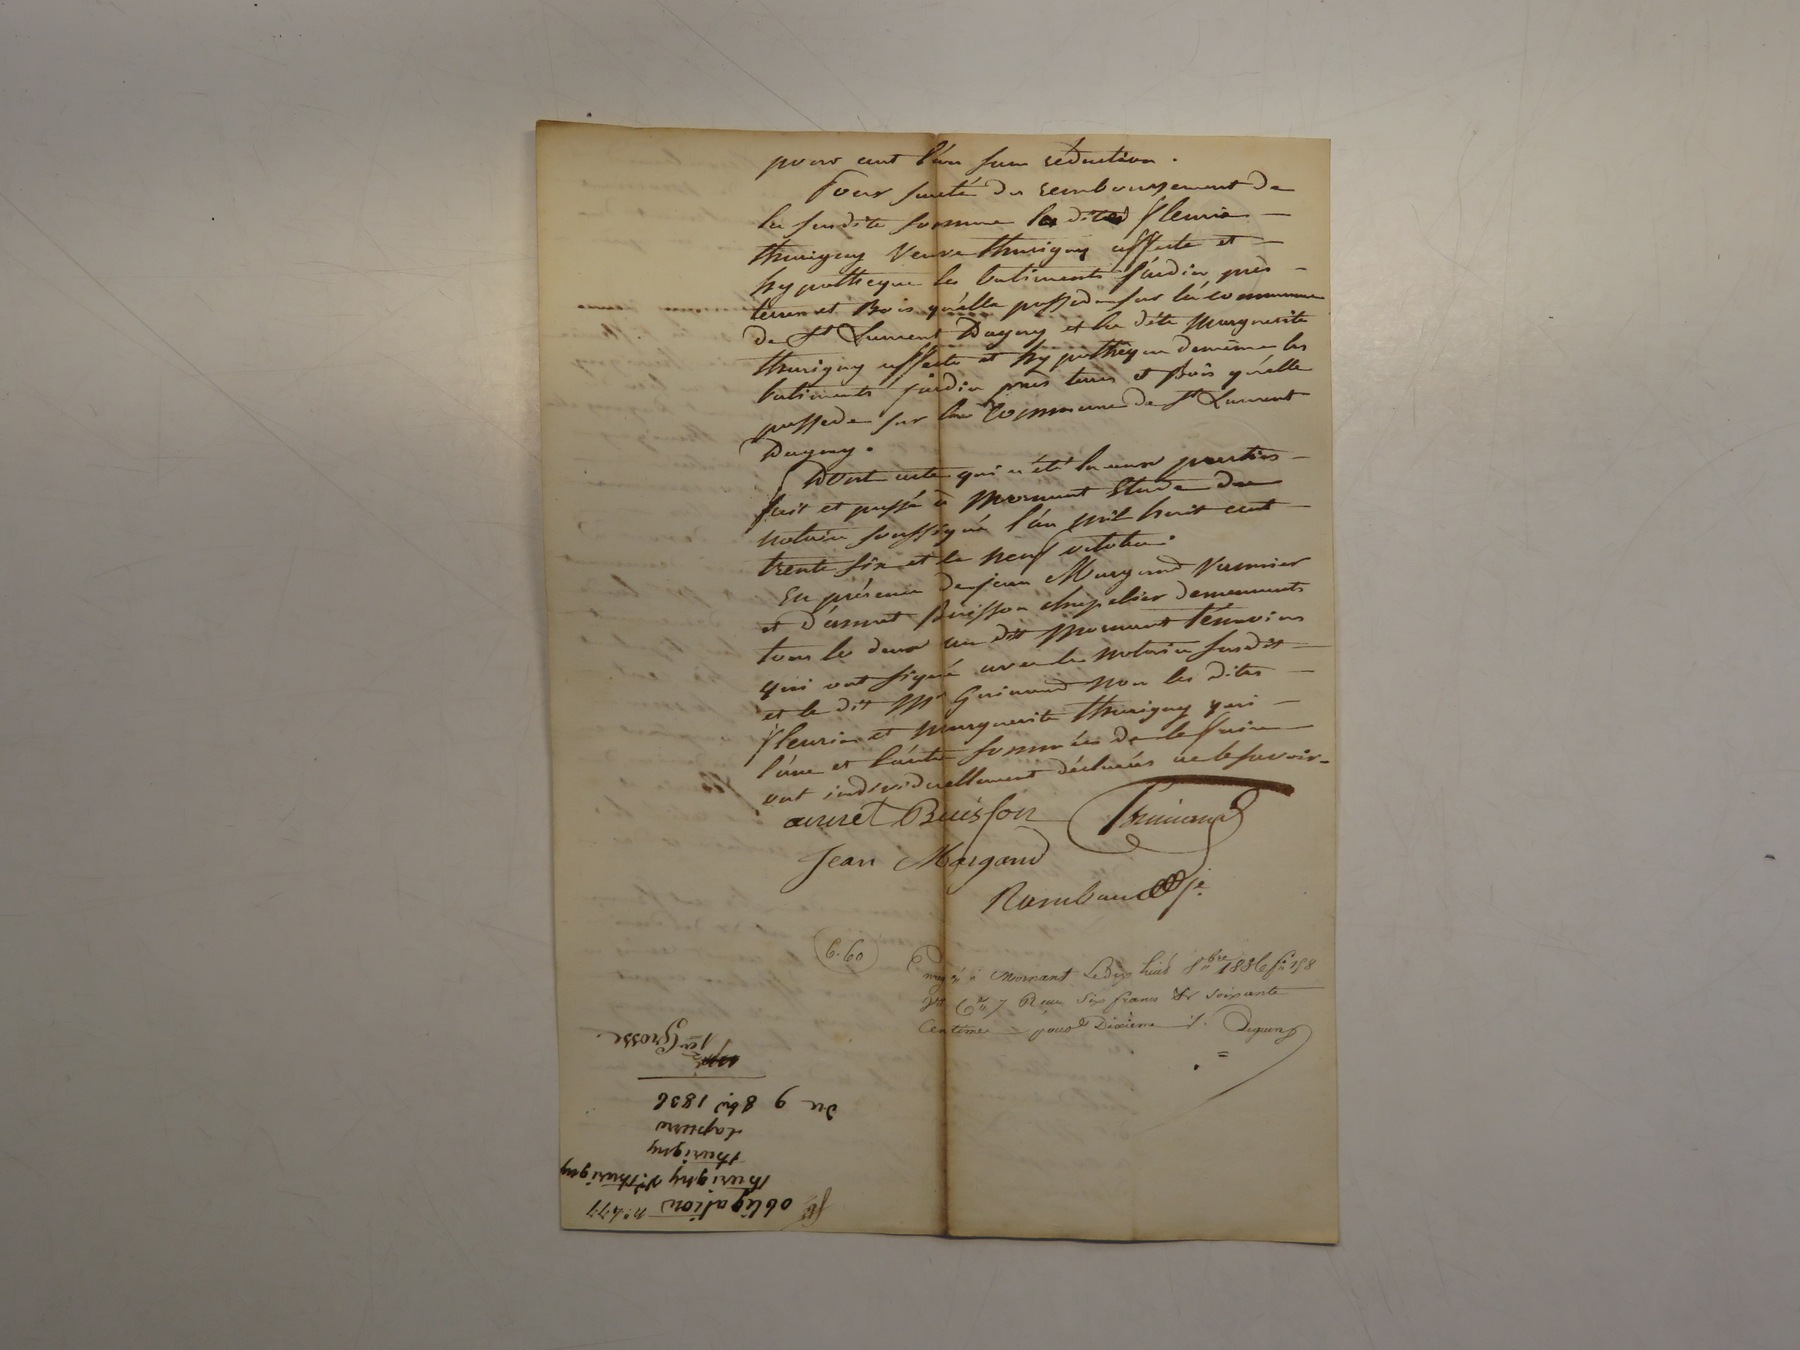 pour cent l'an sans réduction.
Pour sureté du remboursement de
la susdite somme la dite fleurie
thurigny Veuve thurigny affecte et
hypotheque les batiments jardin près
terres et Bois qu'elle possede sur la commune
de St Laurent Dagny et la dite Marguerite
thurigny affecte et hypotheque de même les
batiments jardin près terres et Bois qu'elle
possede sur la Commune de St Laurent
Dagny.
Dont acte qui a été lu aux parties
fait et passé à Mornant Etude du
notaire soussigné l'an mil huit cent
trente six et le neuf octobre.
En présence de jean Margand
et d'annet Buisson chapelier demeurants
tous les deux au dit Mornant témoins
qui ont signé avec le notaire susdit
et le dit Mr non les dites
fleurie et Marguerite thurigny qui
l'une et l'autre sommées de le faire
ont individuellement déclarées ne le savoir.
annet Buisson
Jean Margand
Rambaud
6.60
à Mornant Le dix huit 8bre 1836 fo 158
Vo Ce 7 Reçu six francs & soixante
Centimes pour Dixième
obligation no 477
thurigny Ve thurigny
thurigny
Lapierre
du 9 8bre 1836
1ere Grosse.